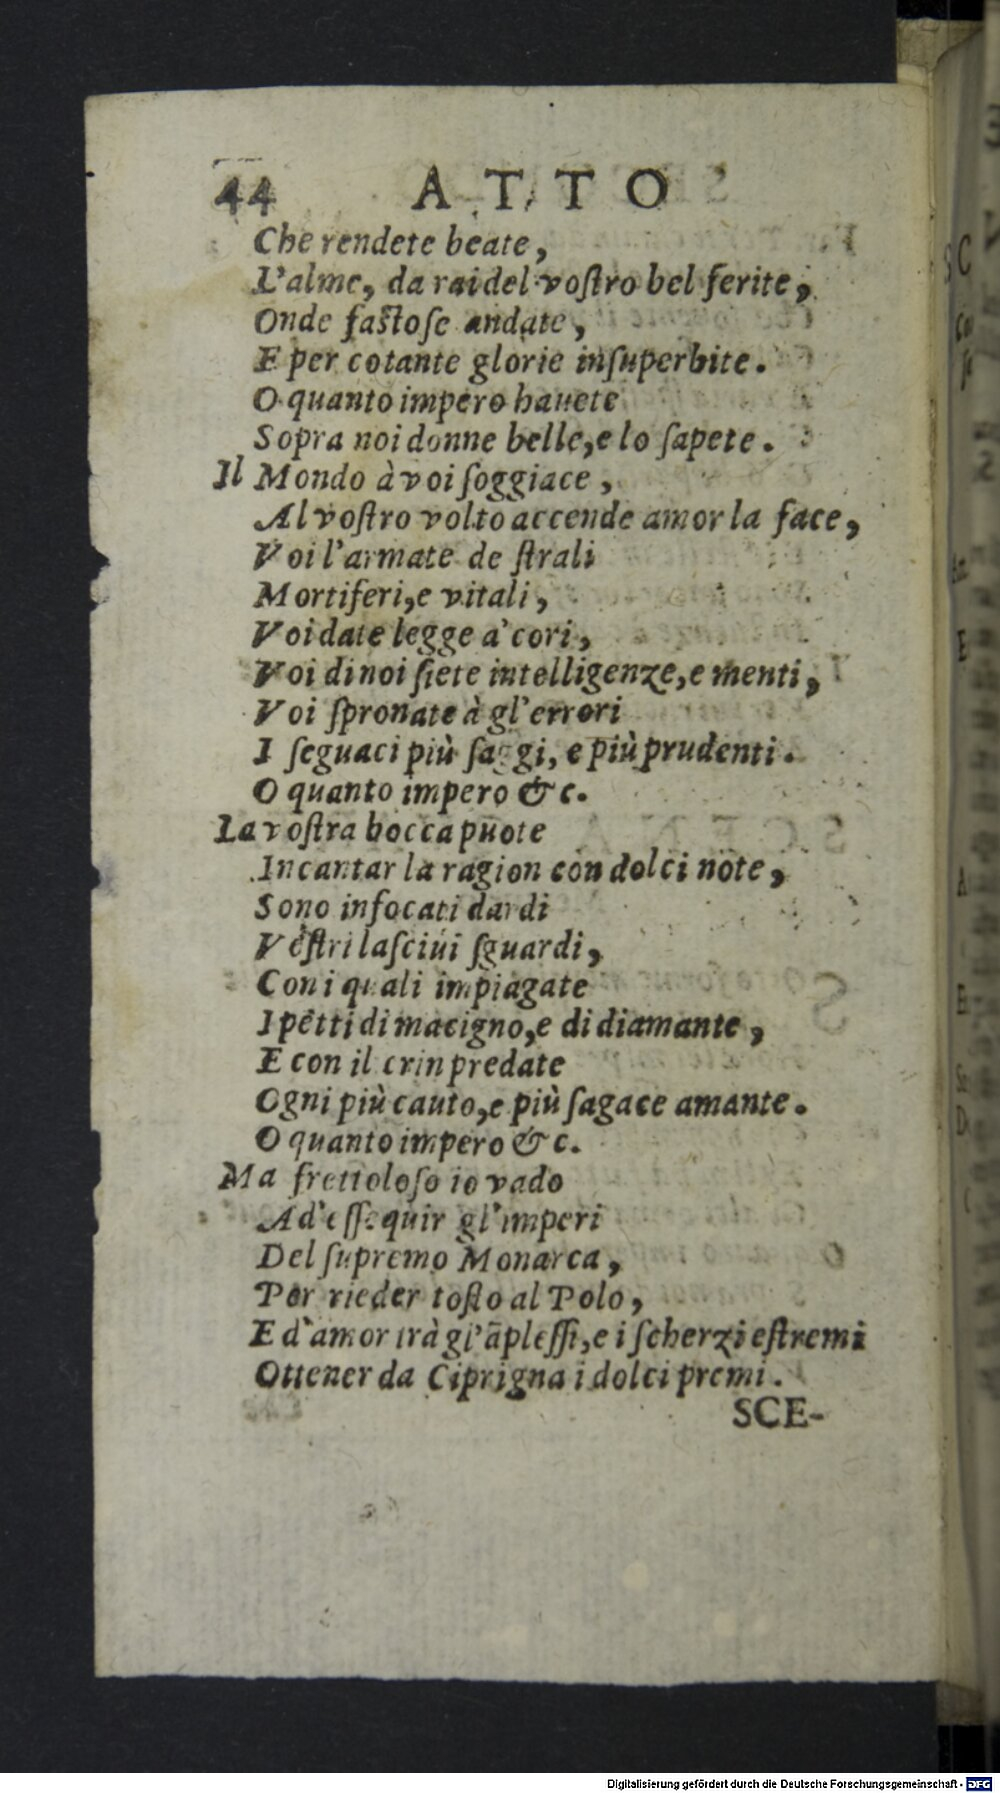 44 ATTO
Che rendete beate,
L'alme, da rai del voſtro bel ferite,
Onde faſtoſe andate,
E per cotante glorie inſuperbite.
O quanto impero hauete
Sopra noi donne belle, e lo ſapete.
Il Mondo à voi ſoggiace,
Al voſtro volto accende amor la face,
Voi l'armate de ſtrali
Mortiferi, e vitali,
Voi date legge a' cori,
Voi di noi ſiete intelligenze, e menti,
Voi ſpronate à gl'errori
I ſeguaci più ſaggi, e più prudenti.
O quanto impero &c.
La voſtra bocca puote
Incantar la ragion con dolci note,
Sono infocati dardi
Veſtri laſciui ſguardi,
Con i quali impiagate
I petti di macigno, e di diamante,
E con il crin predate
Ogni più cauto, e più ſagace amante.
O quanto impero &c.
Ma frettoloſo io vado
Ad'eſſequir gl'imperi
Del ſupremo Monarca,
Per rieder toſto al Polo,
E d'amor trà gl'āpleſſi, e i ſcherzi eſtremi
Ottener da Ciprigna i dolci premi.
SCE-
Digitalisierung gefördert durch die Deutsche Forschungsgemeinschaft - DFG